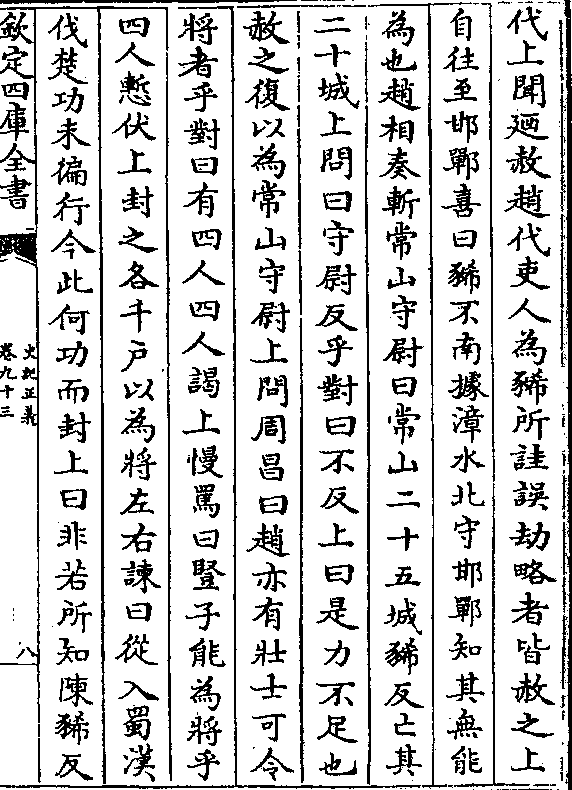 代上聞廼赦趙代吏人為豨所詿誤劫略者皆赦之上
自往至邯鄲喜曰豨不南據漳水北守邯鄲知其無能
為也趙相奏斬常山守尉曰常山二十五城豨反亡其
二十城上問曰守尉反乎對曰不反上曰是力不足也
赦之復以為常山守尉上問周昌曰趙亦有壯士可令
將者乎對曰有四人四人謁上慢罵曰豎子能為將乎
四人慙伏上封之各千戶以為將左右諫曰從入蜀漢
伐楚功未徧行今此何功而封上曰非若所知陳豨反
欽定四庫全書
史記正義
卷九十三
八